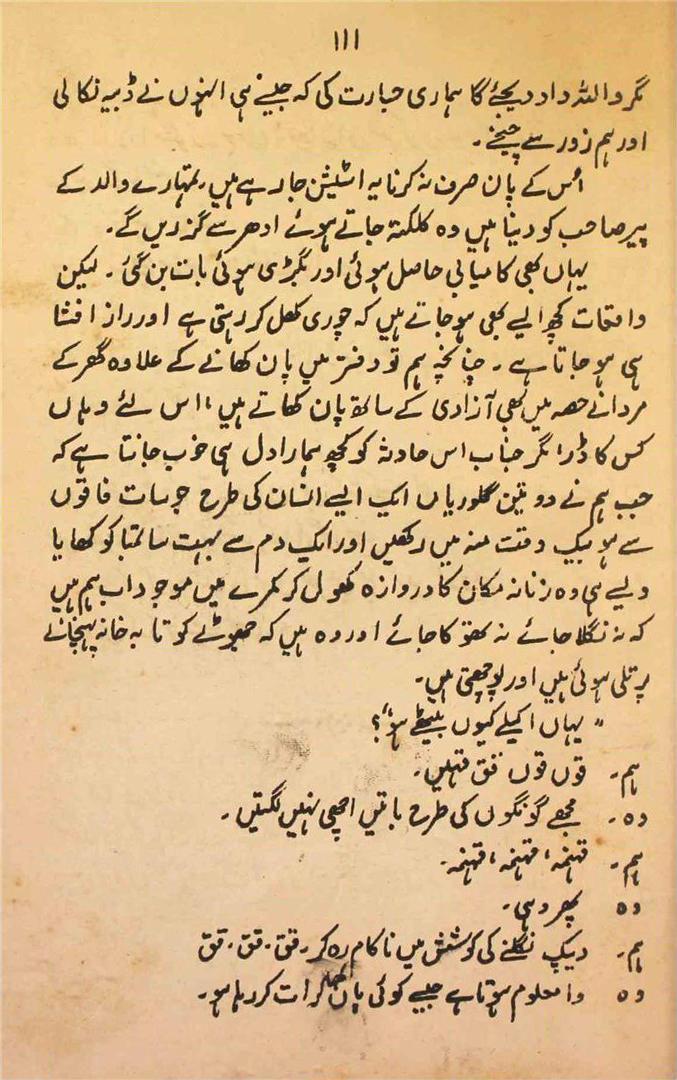 ۱۱۱
مگر واللہ داد دیجئے گا ہماری جسارت کی کہ جیسے ہی انہوں نے ڈبیہ نکالی
اور ہم زور سے چیخے۔
اُس کے پان صرف نہ کرنا یہ اسٹیشن جا رہے ہیں۔ تمہارے والد کے
پیر صاحب کو دینا ہیں وہ کلکتہ جاتے ہوئے ادھر سے گزریں گے۔
یہاں بھی کامیابی حاصل ہوئی اور بگڑی ہوئی بات بن گئی۔ لیکن
واقعات کچھ ایسے بھی ہو جاتے ہیں کہ چوری کھل کر رہتی ہے اور راز افشا
ہی ہو جاتا ہے۔ چنانچہ ہم تو دفتر میں پان کھانے کے علاوہ گھر کے
مردانے حصہ میں بھی آزادی کے ساتھ پان کھاتے ہیں، اس لئے وہاں
کس کا ڈر، مگر جناب اس حادثہ کو کچھ ہمارا دل ہی خوب جانتا ہے کہ
جب ہم نے دو تین گلوریاں ایک ایسے انسان کی طرح جو سات فاقوں
سے ہو بیک وقت منہ میں رکھیں اور ایک دم سے بہت سا تمباکو کھایا
ویسے ہی وہ زنانہ مکان کا دروازہ کھول کر کمرے میں موجود اب ہم ہیں
کہ نہ نگلا جائے نہ تھوکا جائے اور وہ ہیں کہ جھوٹے کو تا بہ خانہ پہنچانے
پر تلی ہوئی ہیں اور پوچھتی ہیں۔
"یہاں اکیلے کیوں بیٹھے ہو"؟
ہم۔ قوں قوں قق قہیں۔
وہ۔ مجھے گونگوں کی طرح باتیں اچھی نہیں لگتیں۔
ہم۔ قہنہ، قہنہ، قہنہ۔
وہ پھر وہی۔
ہم۔ دیک نگلنے کی کوشش میں ناکام رہ کر۔ قق۔ قق۔ قق
وہ وا معلوم ہوتا ہے جیسے کوئی پان کھا کر بات کر رہا ہو۔